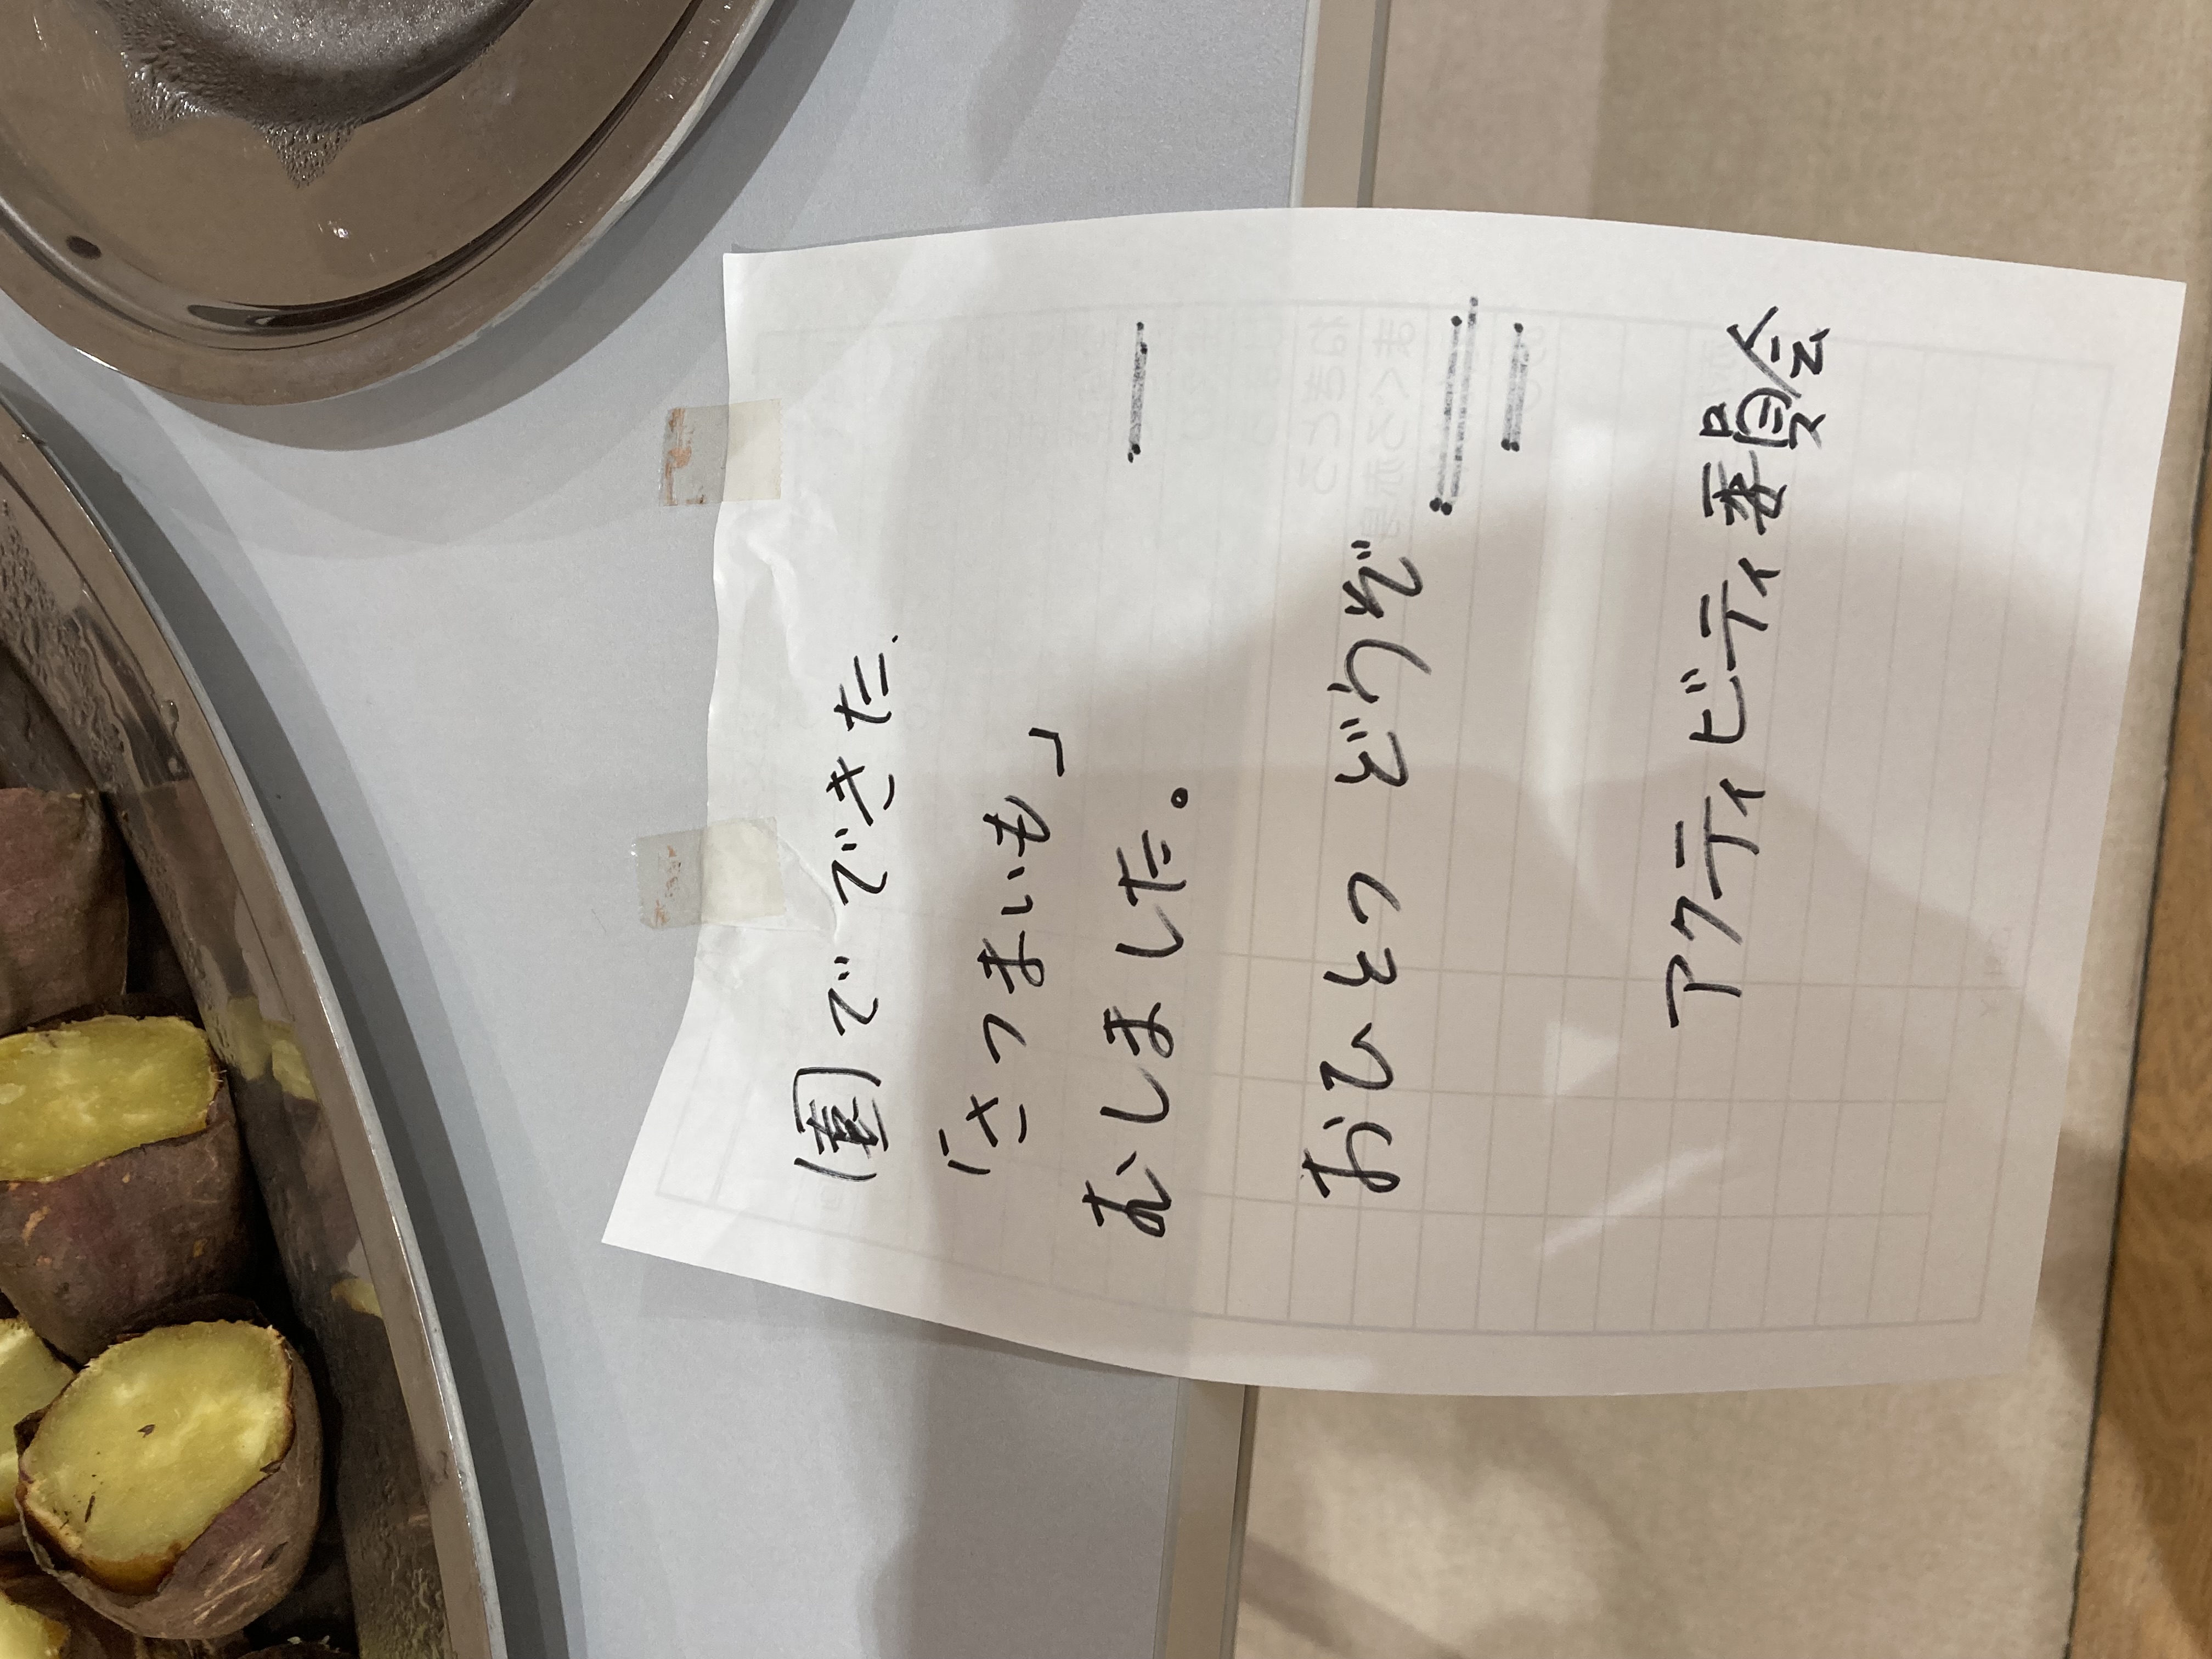 園でできた
「さつまいも」
むしました。
おひとつ どうぞ
アクティビティ委員会